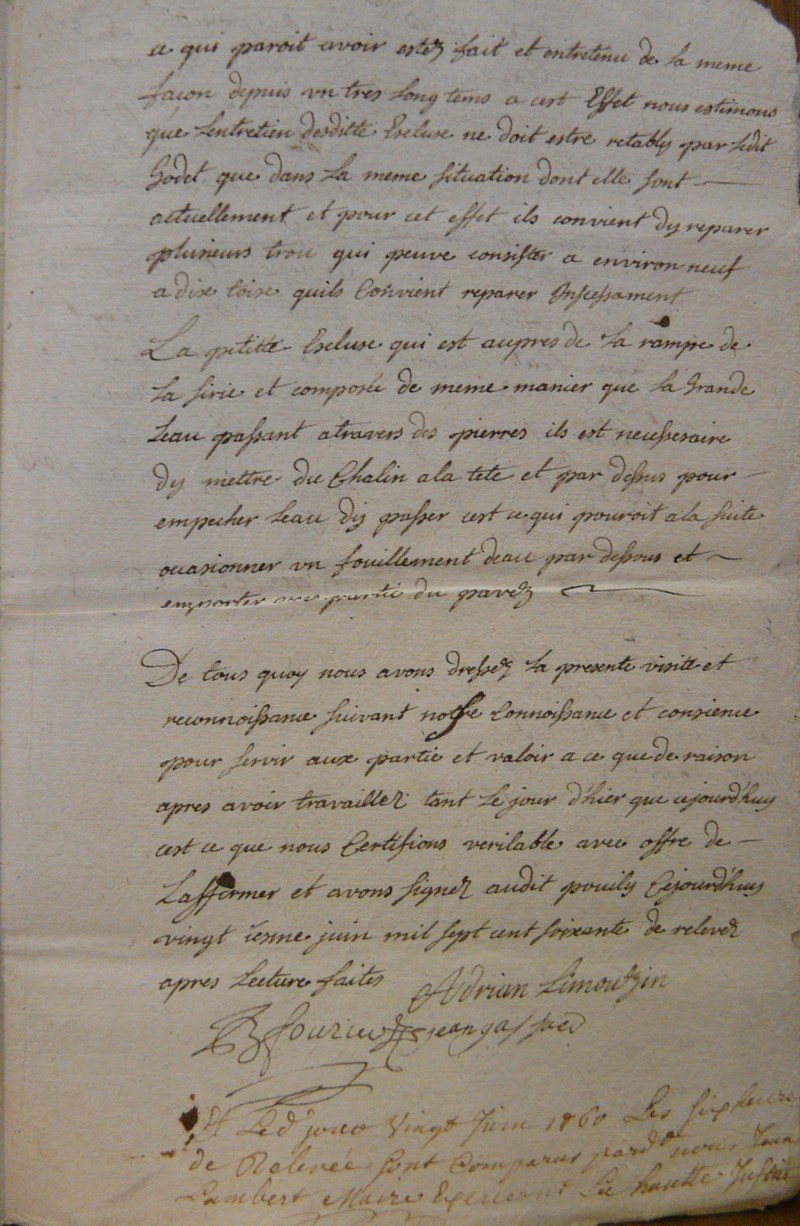 ce qui paroit avoir estez fait et entretenu de la meme
facon depuis vn tres long tems a cest Effet nous estimons
que Lentretien desditte Ecluse ne doit estre retably par Ledit
Godet que dans La meme situation dont elle sont
actuellement et pour cet effet ils convient dy reparer
plusieurs trou qui peuve consister a environ neuf
a dix toise quils Convient reparer Inscessament
La petitte Ecluse qui est aupres de La rampe de
La sirie et composée de meme manier que La Grande
Leau passant atravers des pierres ils est necessesaire
dy mettre du Chalin a la tete et par dessus pour
empecher Leau dy passer cest ce qui pouroit a la suite
ocasionner vn fouillement deau par dessous et
emporter une partie du pavez
De tous quoy nous avons dressez La presente visitte et
reconnoissance suivant nostre Connoissance et consience
pour servir aux partie et valoir a ce que de raison
apres avoir travaillez tant Le jour d'hier que cejourd'huy
cest ce que nous Certifions veritable avec offre de
Laffirmer et avons signez audit pouily Cejourd'huy
vingt iesme juin mil sept cent soixante de relevez
apres Lecture faites Adrian Limouzin
jean
Et Led jour Vingt Juin 1760 Les six heures
de Relevée sont Comparus pard nous Jean
Lambert Maire Exerceant La hautte Justice